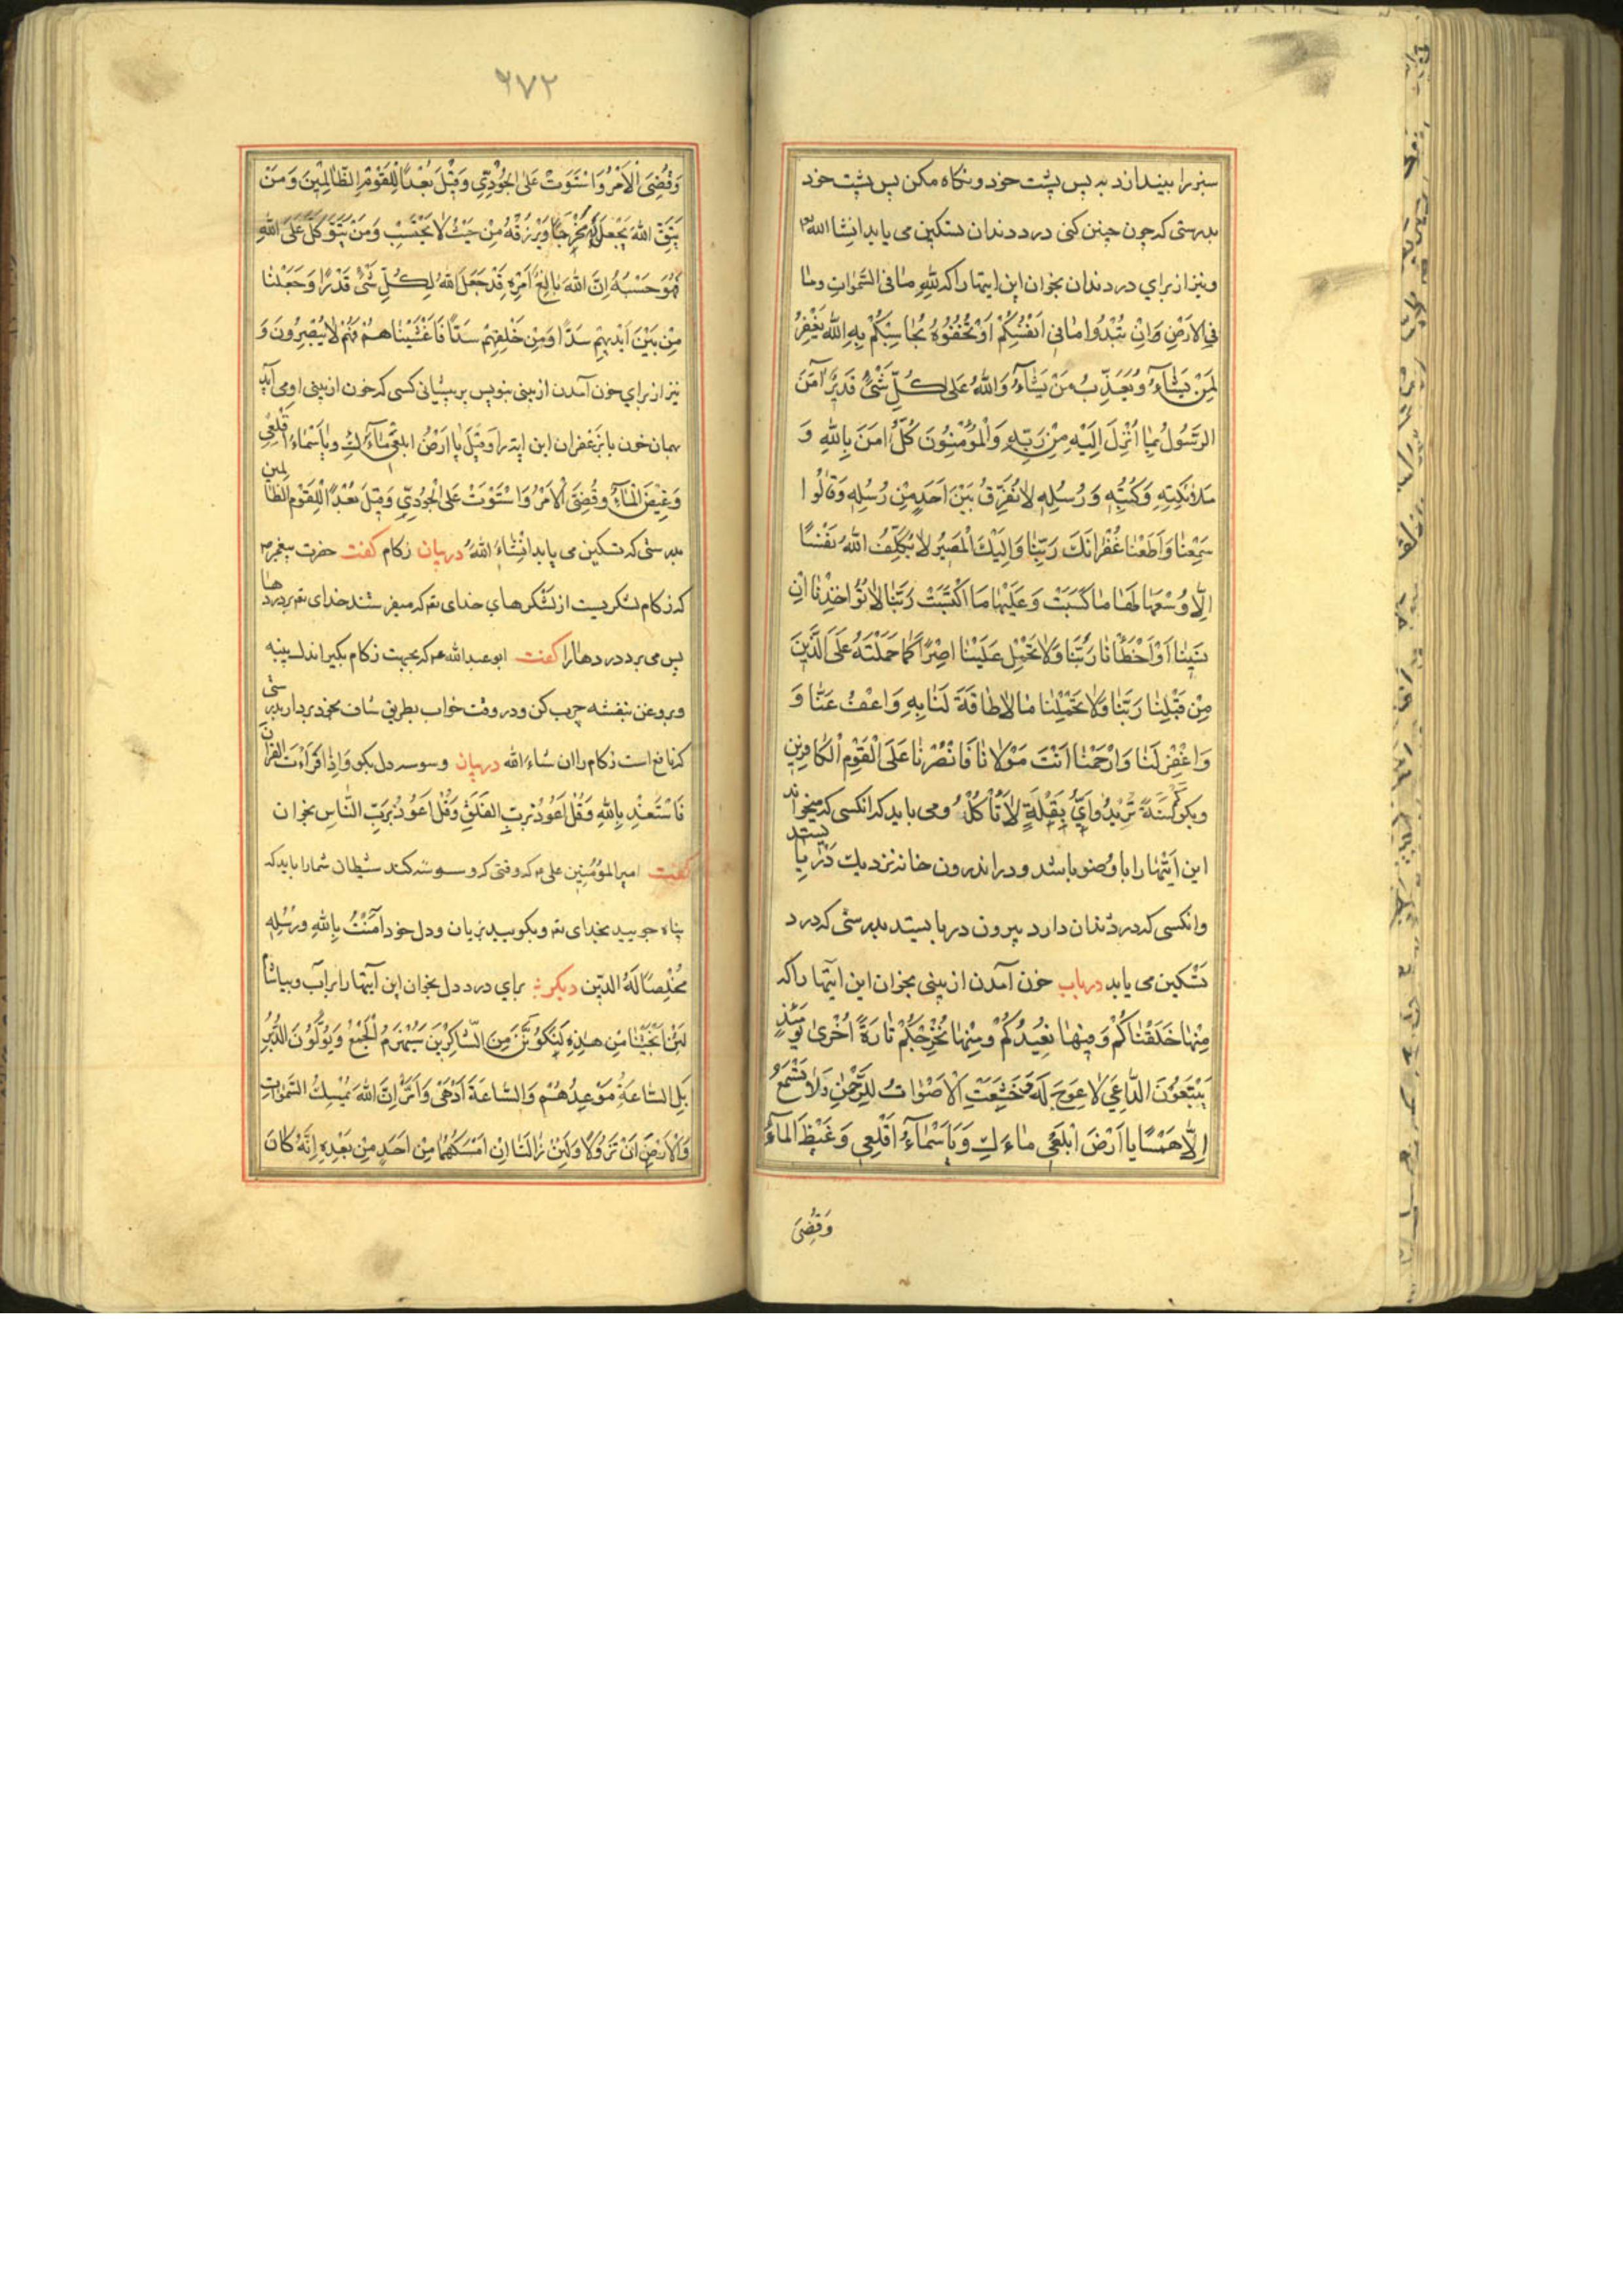 سبز را بیندازد به پس پشت خود و نکاه مکن پس پشت خود
بدرستی که چون چنین کنی درد دندان تسکین می یابد انشا الله تع
و نیز از برای درد دندان بخوان این ایتها را که لِلّهِ مٰا فی السَّمٰوٰاتِ ومٰا
فِی الاَرْضِ وَاِنْ تُبْدُوا مٰا فی اَنْفُسِکُمْ اَوْ تُخْفُوْهُ یُحٰاسِبْکُمْ بِهِ اللّٰه فَیَغْفِرُ
لِمَنْ یَشٰآءُ وَیُعَذِّبُ مَنْ یَشٰآءُ وَاللّٰهُ عَلی کُلِّ شَیْءٍ قَدیٌر آمَنَ
الرَّسُولُ بِمٰا اُنْزِلَ اِلَیْهِ مِنْ رَبِّهِ وَالْمُؤْمِنُونَ کُلٌّ امَنَ بِاللّٰهِ وَ
مَلاٰئِکَتِهِ وَکُتُبِهِ وَرُسُلِهِ لاٰ نُفَرِّقُ بَیْنَ اَحَدٍ مِنْ رُسُلِهِ وَقٰالُوا
سَمِعْنٰا وَاَطَعْنٰا غُفْرٰانَکَ رَبَّنٰا وَاِلَیْكَ الْمَصیرُ لاٰ یُکَلِّفُ اللّٰهُ نَفْسًا
اِلّٰا وُسْعَهٰا لَهٰا مٰا کَسَبَتْ وَعَلَیْهٰا مَا اکْتَسَبَتْ رَبَّنٰا لاٰ تُؤٰاخِذْنٰا اِنْ
نَسینٰا اَوْ اَخْطَأْنٰا رَبَّنٰا وَلاٰ تَحْمِلْ عَلَیْنٰا اِصْرًا کَمٰا حَمَلْتَهُ عَلَی الَّذینَ
مِنْ قَبْلِنٰا رَبَّنٰا وَلاٰ تُحَمِّلْنٰا مٰا لاٰ طٰاقَةَ لَنٰا بِهِ وَاعْفُ عَنّٰا وَ
وَاغْفِرْ لَنٰا وَارْحَمْنٰا اَنْتَ مَوْلاٰنٰا فَانْصُرْنٰا عَلَی الْقَوْمِ الْکٰافِرینَ
ومی باید که انکسی که میخواند
این اَیتهٰا را با وُضو باشد و در اندرون خانه نزدیك دَر بایستد
و انکسی که درد دندان دارد بیرون در بایستد بدرستی که درد
تَسْکین می یابد درباب خون آمدن از بینی بخوان این ایتها را که
مِنْهٰا خَلَقْنٰاکُمْ وَفیهٰا نُعیدُکُمْ ومِنْهٰا نُخْرِجُکُمْ تٰارَةً اُخْریٰ یَوْمَئِذٍ
یَتَّبِعُونَ الدّٰاعِیَ لاٰ عِوَجَ لَهُ وَخَشَعَتِ الْاَصْوٰاتُ لِلرَّحْمٰنِ فَلاٰ تَسْمَعُ
اِلّٰا هَمْسًا یا اَرْضُ ابْلَعی مٰاءَكِ وَیٰا سَمٰآءُ اَقْلِعی وَغیظَ الْمآءُ
وَقُضِیَ
۶۷۲
وَقُضِیَ الْاَمْرُ وَاسْتَوَتْ عَلَی الْجُودِیِّ وَقیلَ بُعْدًا لِلْقَوْمِ الظّٰالِمینَ وَمَنْ
یَتَّقِ اللّٰهَ یَجْعَلْ لَهُ مَخْرَجًا وَیَرْزُقْهُ مِنْ حَیْثُ لاٰ یَحْتَسِبْ وَمَنْ یَتَوَکَّلْ عَلَی اللّٰهِ
فَهُوَ حَسْبُهُ اِنَّ اللّٰهَ بٰالِغُ اَمْرِهِ قَدْ جَعَلَ اللّٰهُ لِکُلِّ شَیْءٍ قَدْرًا وَجَعَلْنٰا
مِنْ بَیْنِ اَیْدیهِمْ سَدًّا وَمِنْ خَلْفِهِمْ سَدًّا فَاَغْشَیْنٰاهُمْ فَهُمْ لاٰ یُبْصِرُونَ وَ
نیز از برای خون آمدن از بینی بنویس بر پیشانی کسی که خون از بینی او می آید
بهمان خون یا بزعفران این ایة را وَقیلَ یٰا اَرْضُ ابلعی مٰآءَكِ ویٰا سَمٰاءُ اَقْلِعی
وَغیضَ الْمٰآءُ وقُضِیَ الْاَمْرُ وَاسْتَوَتْ عَلَی الْجُودِیِّ وَقیلَ بُعْدًا لِلْقَوْمِ الظّٰالِمین
بدرستی که تسکین می یابد انشٰاءَ اللّٰهُ دربیان زکام کفت حضرت پیغمبر ص
که زکام لشکریست از لشکرهای خدای تع که میفرستند خدای تع بر دردها
پس می برد دردهارا کفت ابو عبد الله ع که بجهت زکام بکیر اندك پنبه
و بروغن بنفشه چرب کن و در وقت خواب بطریق شاف بخود بردار بدرستی
که نافع است زکام را ان شاء الله دربیان وسوسه دل بکو وَاِذٰا قَرَأْتَ القُرٰان
فَاسْتَعِذْ بِاللّٰهِ وَقُلْ اَعُوذُ بِرَبِّ الفَلَقِ وَقُلْ اعَوُذُ بِرَبِّ النّٰاسِ بخوان
کفت امیر المؤمنین علی ع که وقتی که وسوسه کند شیطان شمارا باید که
پناه جویید بخدای تع و بکویید بزبان ودل خود آمَنْتُ بِاللّٰهِ ورُسُلِهِ
مُخْلِصًا لَهُ الدّینَ دیکر برای درد دل بخوان این آیتها را بر اَب و بیاشام
لَئِنْ اَنْجَیْتَنٰا مِنْ هٰذِهِ لَنَکُونَنَّ مِنَ الشّٰاکِرینَ سَیُهْزَمُ الْجَمْعُ وَیُوَلُّونَ الدُّبُر
بَلِ السّٰاعَةُ مَوْعِدُهُمْ وَالسّٰاعَةُ اَدْهٰی وَاَمَرُّ اِنَّ اللّٰهَ یُمْسِكُ السَّمٰوٰاتِ
وَالْاَرْضَ اَنْ تَزُولاٰ وَلَئِنْ زٰالَتٰا اِنْ اَمْسَکَهُمٰا مِنْ اَحَدٍ مِنْ بَعْدِهِ اِنَّهُ کٰانَ